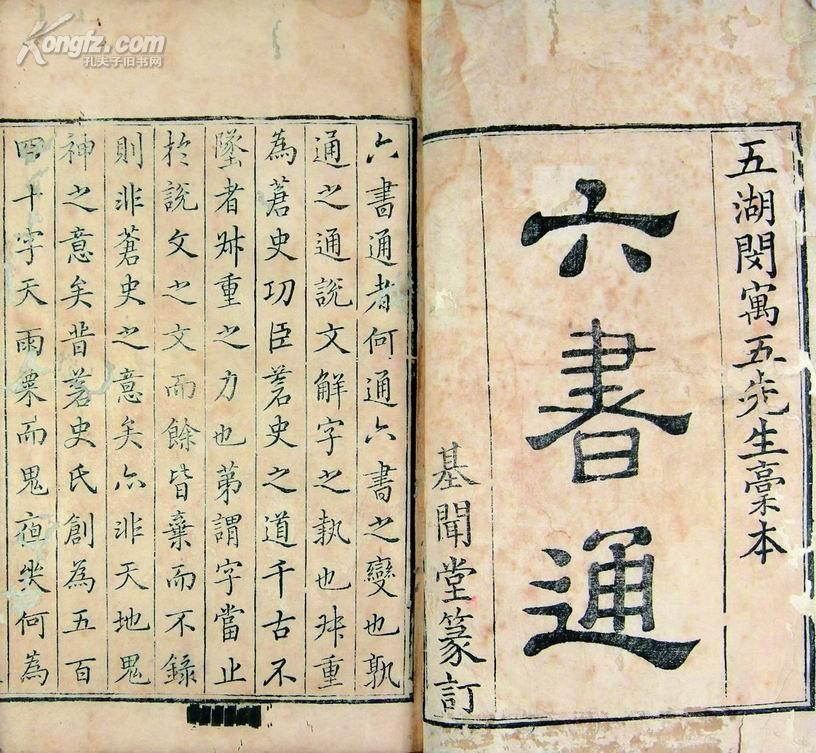 五湖閔寓五先生槀本
六書通
基聞堂篆訂
六書通者何通六書之變也孰
通之通說文解字之執也叔重
為蒼史功臣蒼史之道千古不
墜者叔重之力也第謂字當止
於說文之文而餘皆棄而不錄
則非蒼史之意矣亦非天地鬼
神之意矣昔蒼史氏創為五百
四十字天雨粟而鬼夜哭何為
Kongfz.com
孔夫子旧书网